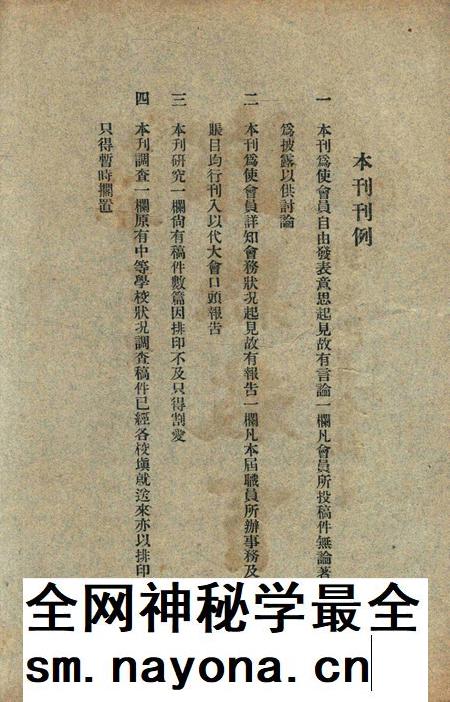 本刊刊例
一 本刊爲使會員自由發表意思起見故有言論一欄凡會員所投稿件無論著
爲披露以供討論
二 本刊爲使會員詳知會務狀況起見故有報告一欄凡本屆職員所辦事務及
賬目均行刊入以代大會口頭報告
三 本刊研究一欄尙有稿件數篇因排印不及只得割愛
四 本刊調查一欄原有中等學校狀況調查稿件已經各校塡就送來亦以排印
只得暫時擱置
全网神秘学最全
sm.nayona.cn